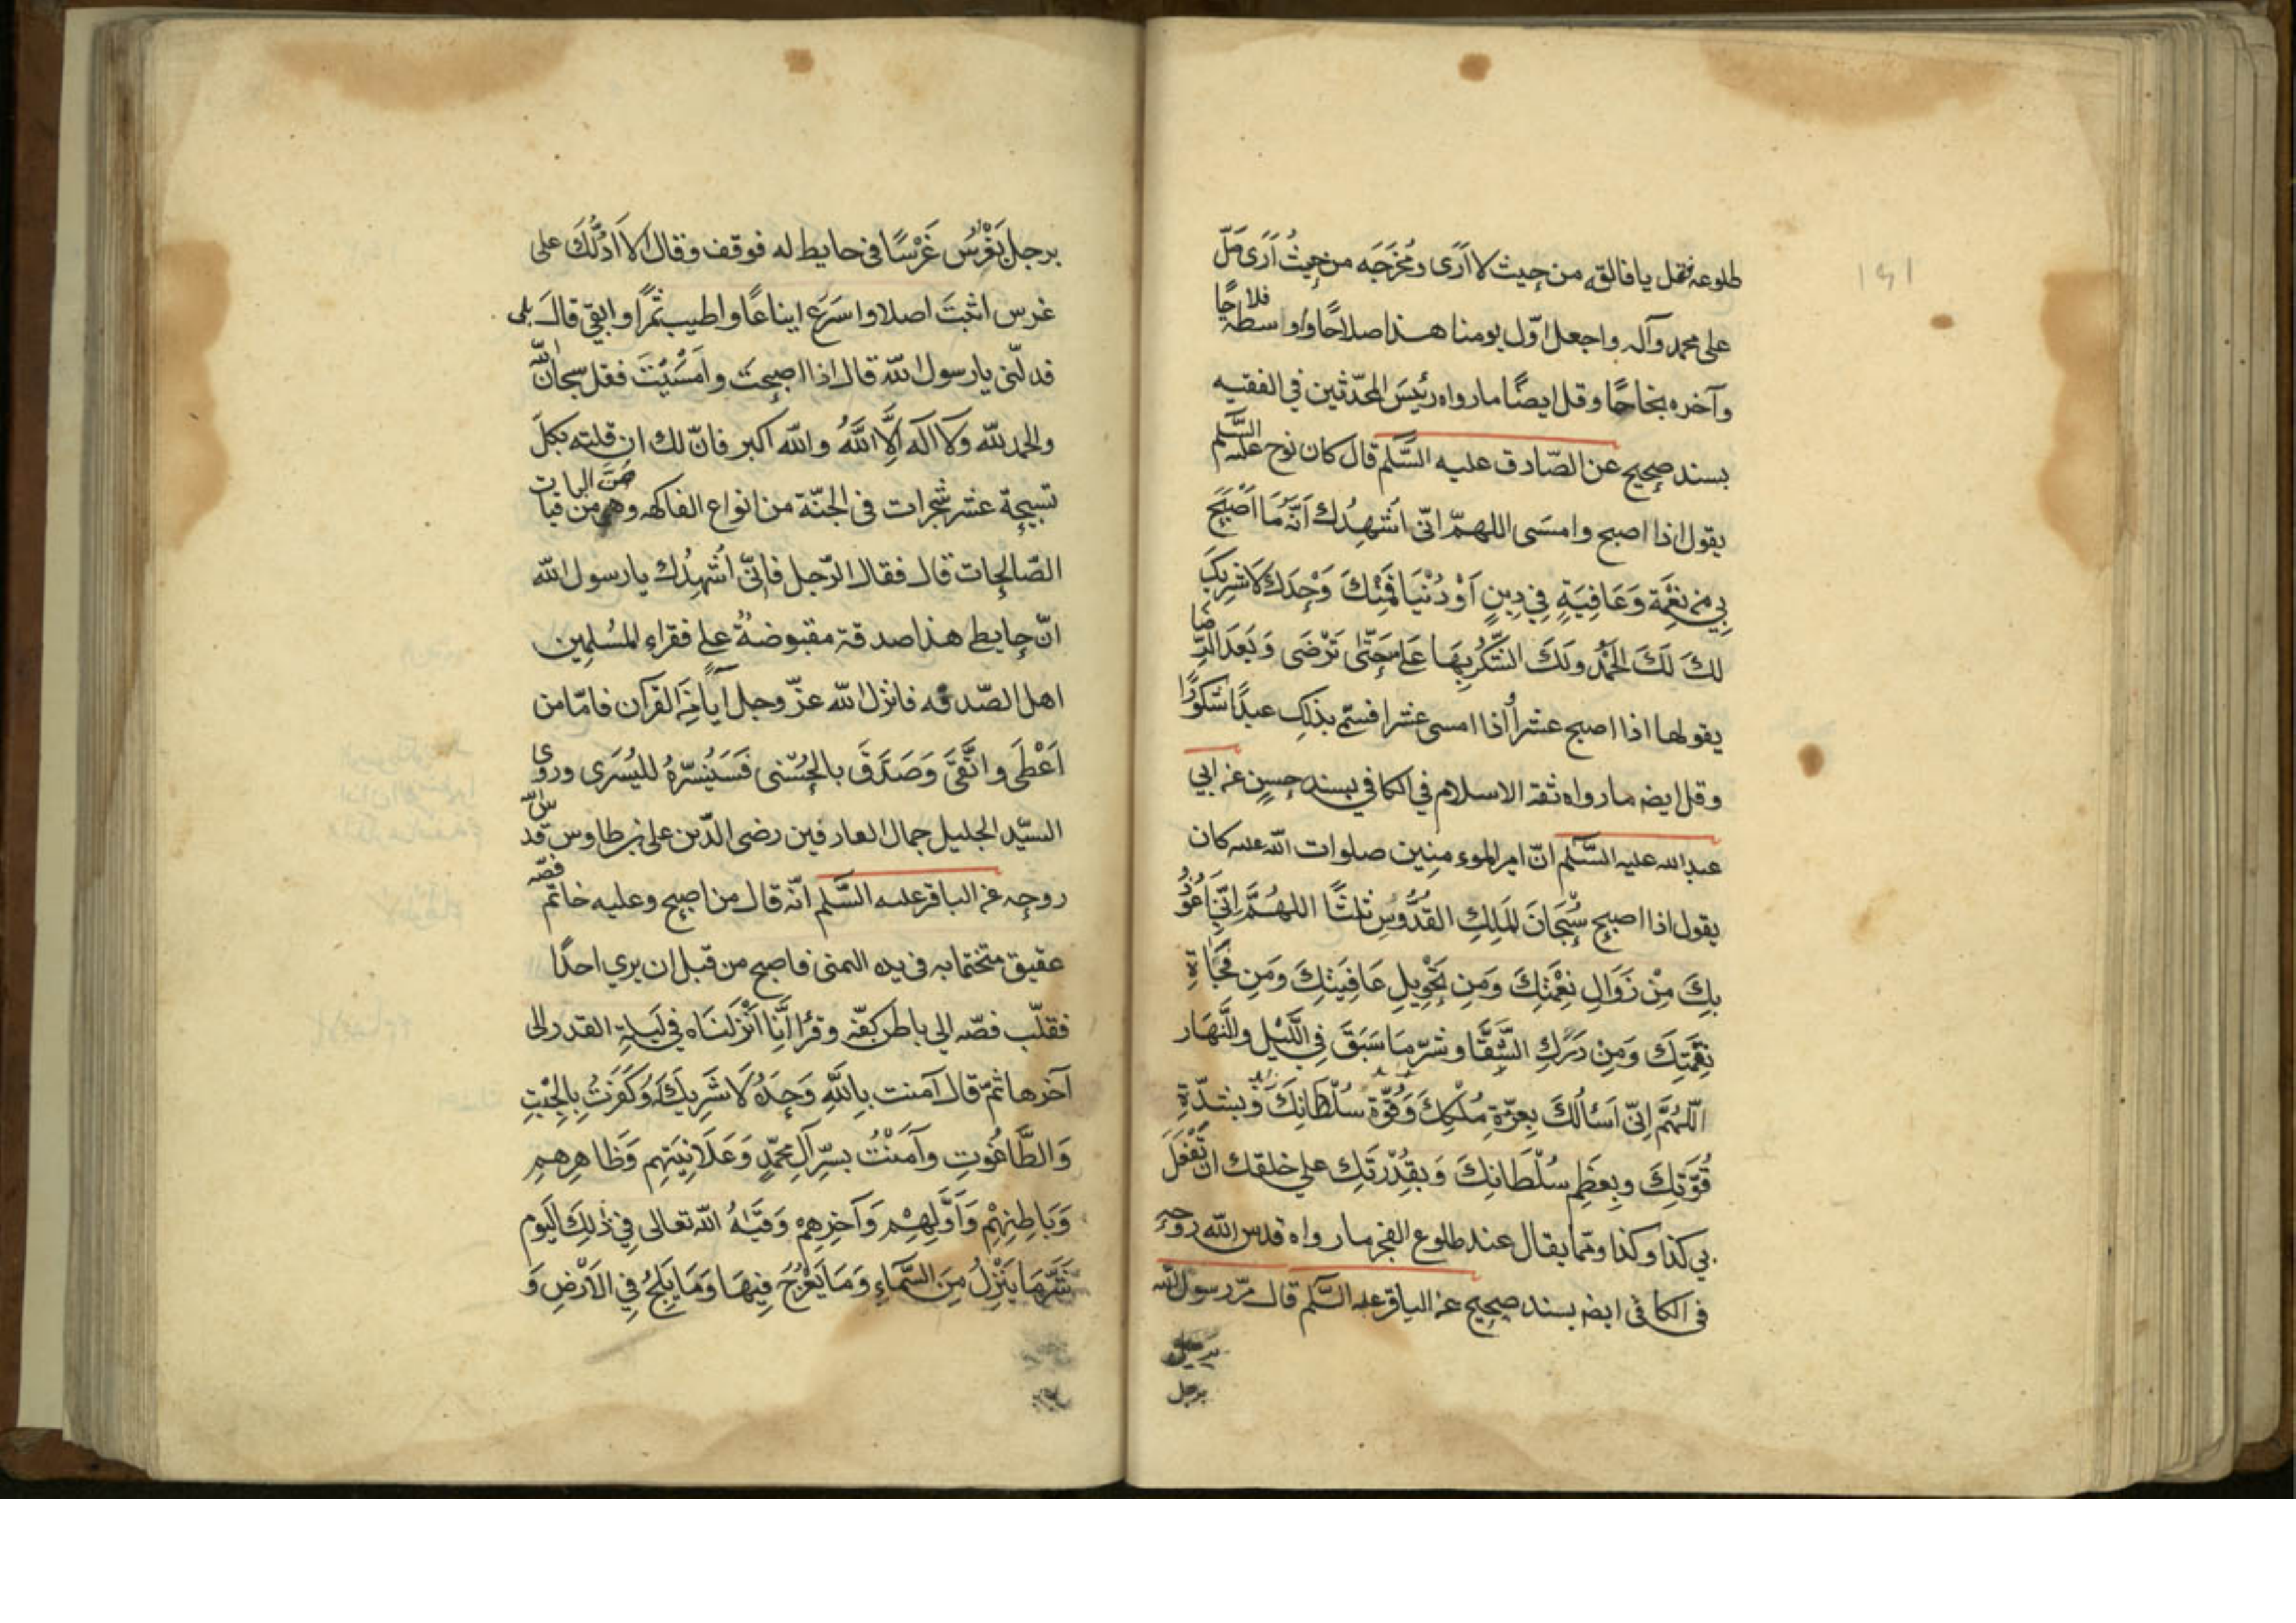 طلوعه فقل يا فالقه من حيث لا أرى ومخرجه من حيث أرى صل
على محمد وآله واجعل اوّل يومنا هذا صلاحًا واواسطه فلاحًا
وآخره نجاحًا وقل ايضًا ما رواه رئيس المحدّثين في الفقيه
بسند صحيح عن الصّادق عليه السَّلم قال كان نوح عليه السَّلم
يقول اذا اصبح وامسَى اللهمّ انّى اُشهِدُك اَنَّه مَا اَصْبَحَ
بِي مِن نِعْمَة وَعَافِيَةٍ فِي دِينٍ اَوْ دُنْيَا فَمِنْكَ وَحْدَكَ لَا شَرِيكَ
لكَ لَكَ الحَمْدُ ولَكَ الشّكْرُ بِهَا عَلَيَّ حَتّى تَرْضَى وَبَعْدَ الرِّضا
يقولها اذا اصبح عشراً اذا امسى عشرا فسمّي بذلك عبدًا شكورًا
وقل ايضه ما رواه ثقة الاسلام في الكافي بسند حسنٍ عن ابي
عبد الله عليه السَّلم انّ امير الموءمنِين صلوات الله عليه كان
يقول اذا اصبح سُبْحَانَ المَلِكِ القُدُّوسِ ثلثًا اللهُمَّ اِنّي اَعُوذُ
بِكَ مِنْ زَوَالِ نِعْمَتِكَ وَمِن تَحْوِيلِ عَافِيَتِكَ وَمِن فَجْأَةِ
نِقْمَتِكَ وَمِنْ دَرَكِ الشَّقَا وشرّ مَا سَبَقَ فِي اللَّيْلِ والنَّهَار
اللّهُمَّ اِنّى اَسْأَلُكَ بِعِزّةِ مُلْكِكَ وَقُوّةِ سُلْطَانِكَ وَبشدّةِ
قُوّتِكَ وبِعَظِمِ سُلْطَانِكَ وَبقُدْرَتِكَ على خلقك ان تَفْعَلَ
بي كذا وكذا وممّا يقال عند طلوع الفجر ما رواه قدس الله روحه
في الكافي ايضه بسند صحيح عن الباقر عليه السَّلم قال مرّ رسول الله
برجل
برجل يَغْرِسُ غَرْسًا في حايط له فوقف وقال الا اَدُلُّكَ على
غرس اثبتَ اصلا واسرَع ايناعًا واطيب ثمرًا وابقى قالَ بلى
فدلّنى يا رسول الله قال اذا اصبحتَ وامْسَيْتَ فقل سبحان الله
والحمد لله ولا اله اِلَّا اللَّهُ والله اكبر فانّ لك ان قلته بكلّ
تسبيحة عشر شجرات فى الجنّة من انواع الفاكهه وهن من الباقيات
الصّالحات قال فقال الرّجل فانّي اُشهِدُك يا رسول الله
انّ حايطى هذا صدقة مقبوضة على فقراء المسُلمِين
اهل الصّدقه فانزل الله عزّ وجل آيًا من القرآن فامّا من
اَعْطَى واتَّقىَ وَصَدَّقَ بالحُسْنى فَسَنُيَسِّرُهُ لليُسْرَى وروى
السيّد الجليل جمال العارفين رضى الدّين على بن طاوس قدس
روحه عن الباقر عليه السَّلم انّه قال من اصبح وعليه خاتم فصّه
عقيق متختما به فى يده اليمنى فاصبح من قبل ان يرى احدًا
فقلّب فصّه الى باطن كفّه وقرأ اِنَّا اَنْزَلنَاه فِي لَيلةِ القدر الى
آخرها ثمّ قال آمنت بِاللّهِ وَحدَهُ لَا شَرِيكَ لَهُ وَكَفَرْتُ بِالجِبْتِ
وَالطَّاغُوتِ وآمَنْتُ بسِرِّ آلِ محمّدٍ وَعَلَانِيَتِهِم وَظاهِرِهِم
وَبَاطِنِهِمْ وَاَوَّلِهِم وَآخِرِهِمْ وَقَيهُ الله تعالى فِي ذٰلِكَ اليَوم
شَرَّ مَا يَنْزِلُ مِنَ السَّمَاءِ وَمَا يَعْرُجُ فِيهَا وَمَا يَلجُ فِي الاَرْضِ وَ